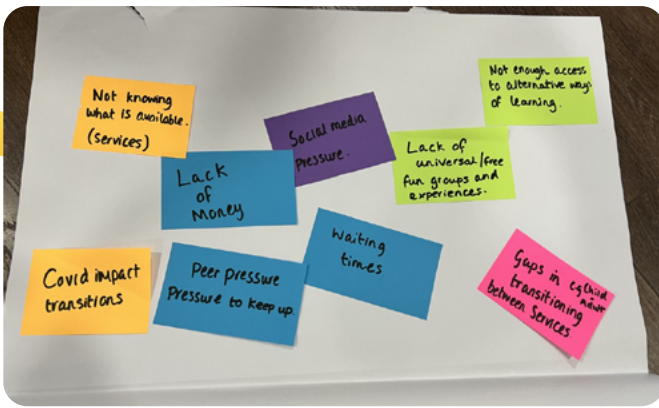 Not knowing
what is available.
(services)
Social media
pressure.
Not enough access
to alternative ways
of learning.
Lack
of
Money
Lack of
universal/free
fun groups and
experiences.
Waiting
times
Covid impact
transitions
Peer pressure
Pressure to keep up.
Gaps in eg child
transitioning
between services